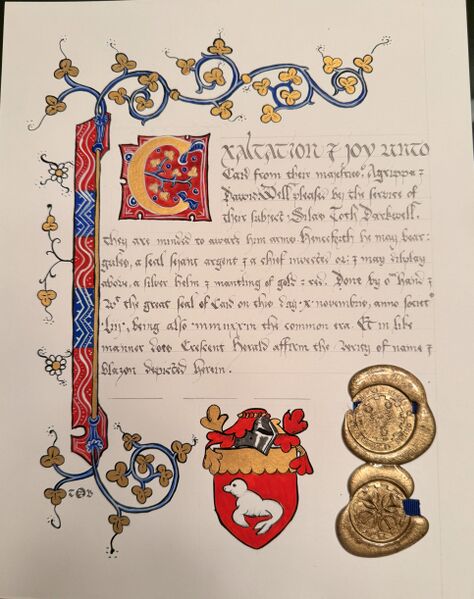 EXALTATION & JOY UNTO
Caid from their majesties, Agrippa &
Well pleased by the service of
their subject Silas Toth Darkwell.
They are minded to award him arms. Henceforth he may bear:
gules, a seal sejant argent & a chief invected or: & may display
above, a silver helm & mantling of gold & red. Done by oʳ hand &
the great seal of Caid on this day x novembre, anno
being also in the common era. Et in like
manner does Crescent Herald affirm the verity of name &
blazon depicted herein.